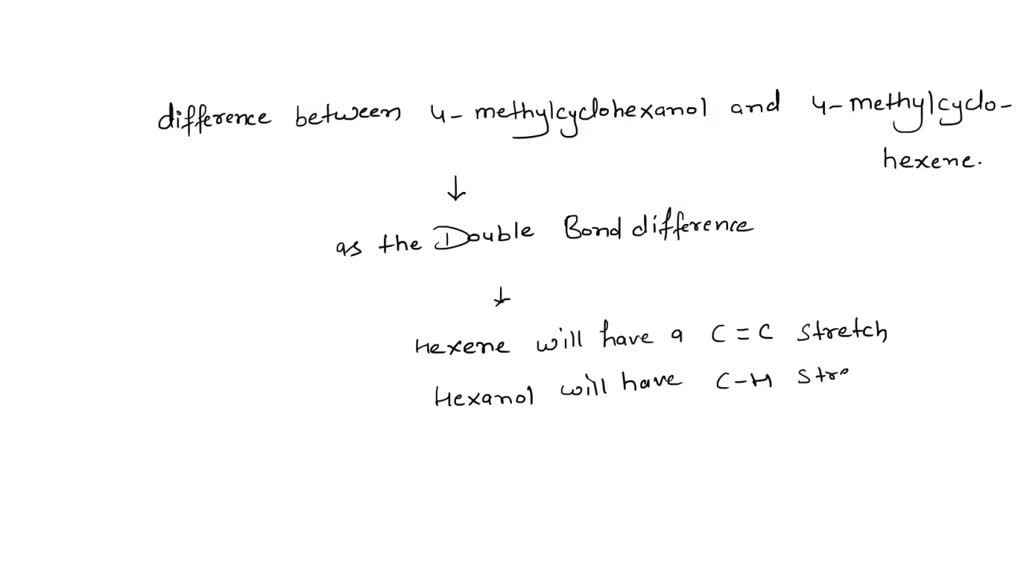 difference between 4-methylcyclohexanol and 4-methylcyclo-
hexene.
↓
as the Double Bond difference
↓
Hexene will have a C=C stretch
Hexanol will have C-H stre